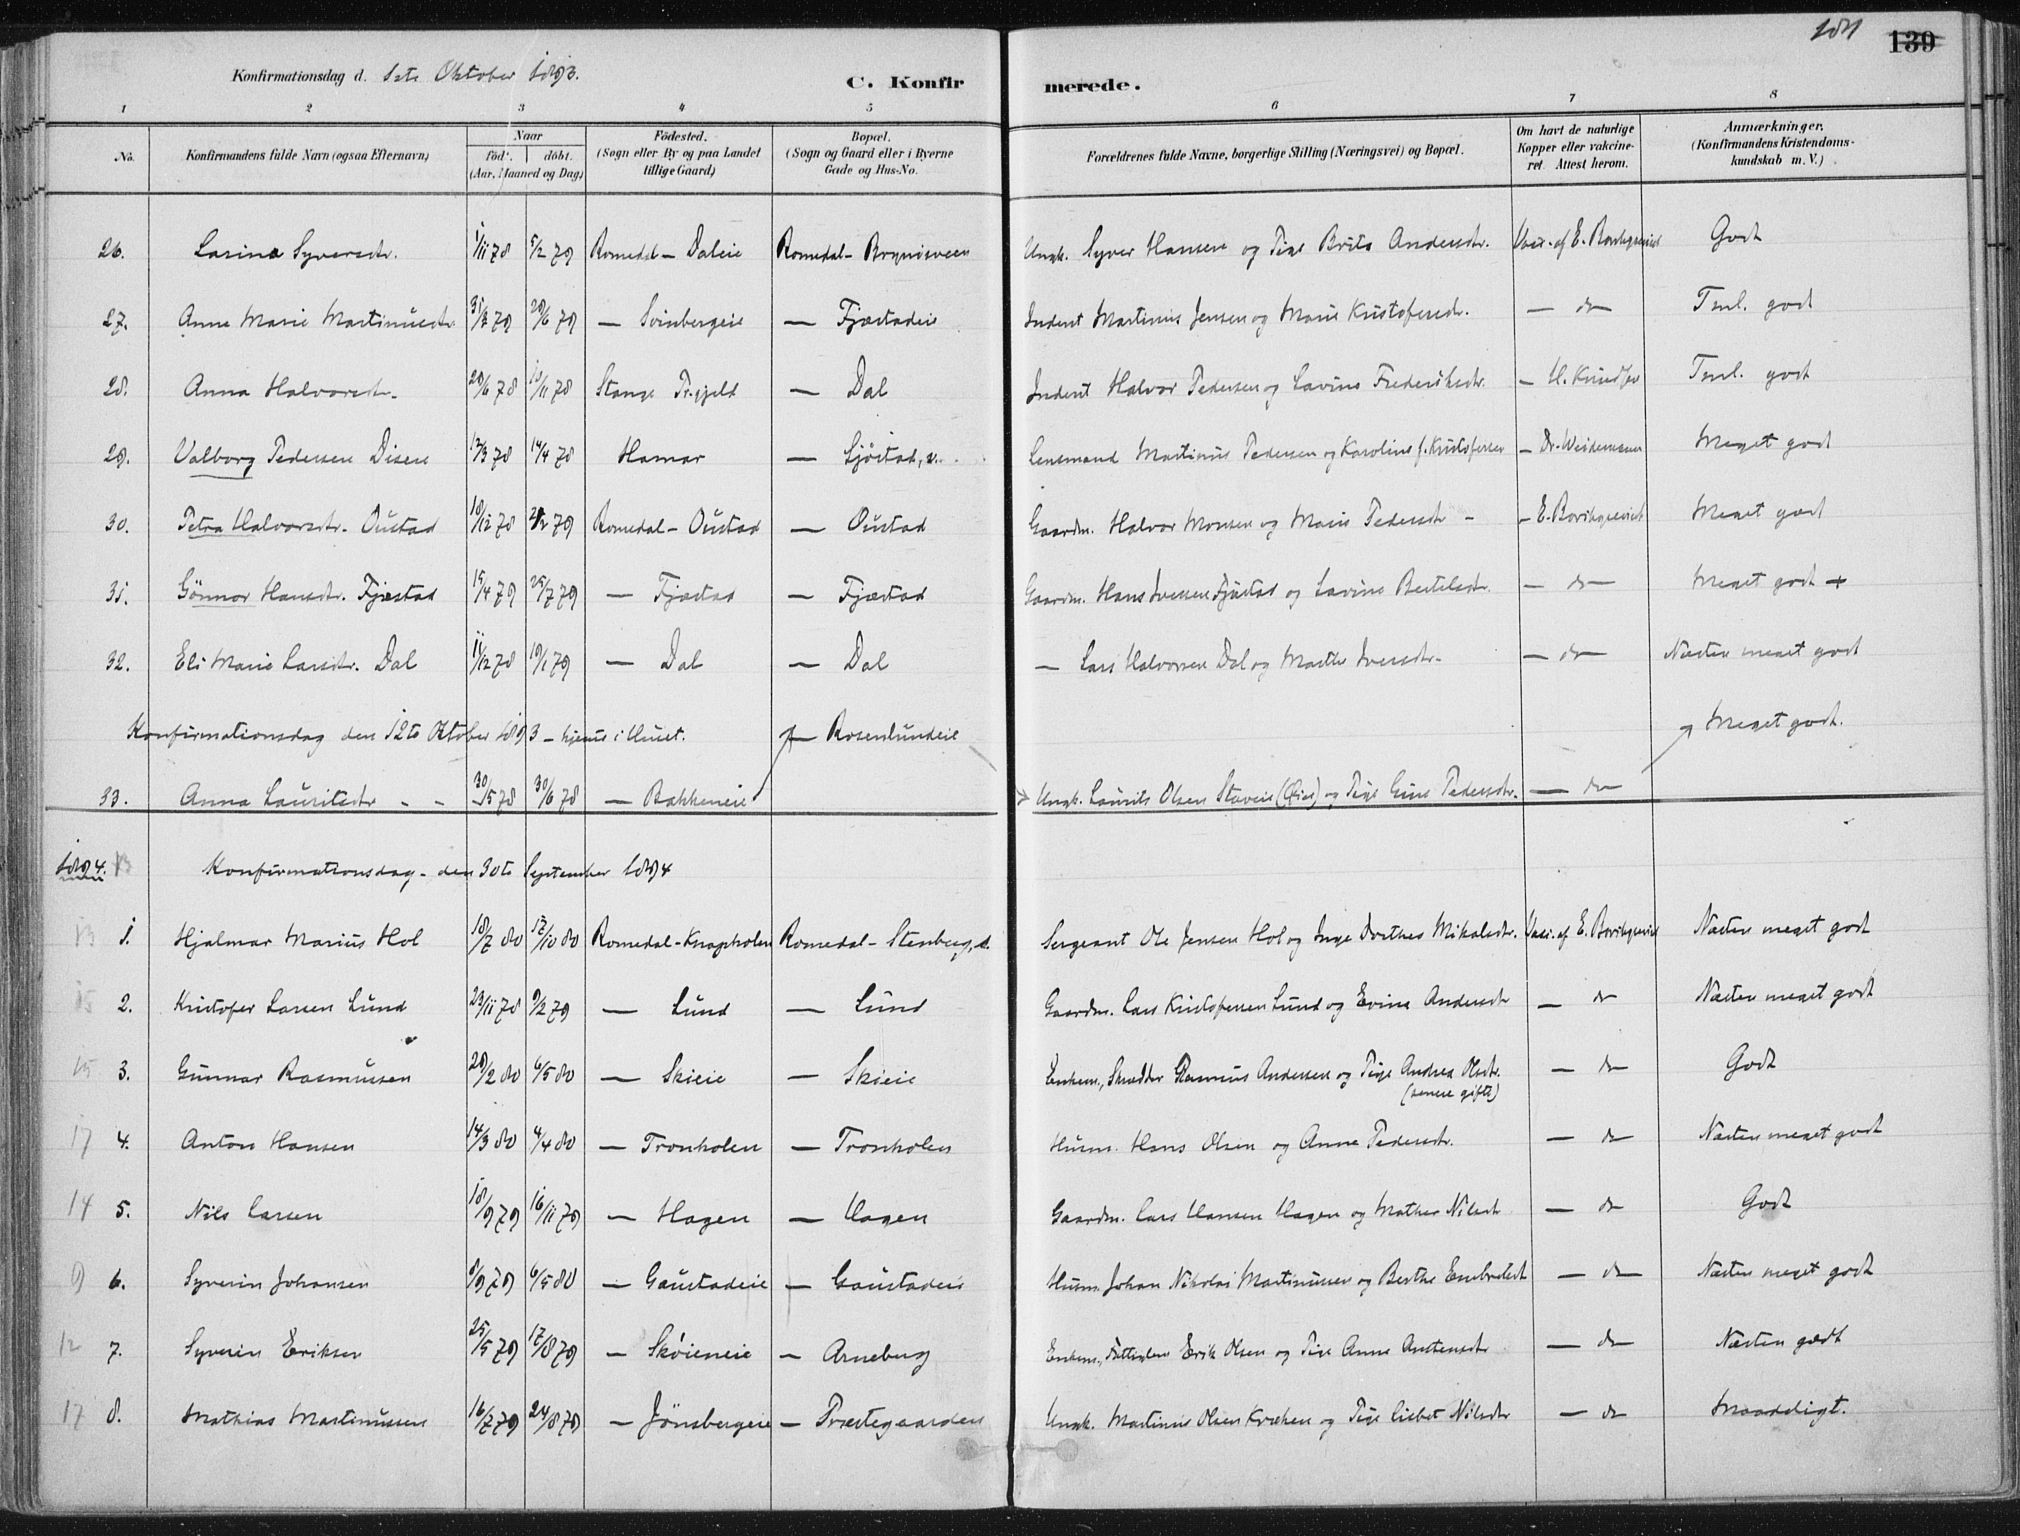 Konfirmationsdag d. 1ste Oktober 1893. C. Konfirmerede. 139
1 2 3 4 5 6 7 8
No. Konfirmandens fulde Navn (ogsaa Efternavn) Naar født. døbt. (Aar, Maaned og Dag) Fødested. (Sogn eller By og paa Landet tillige Gaard) Bopæl. (Sogn og Gaard eller i Byerne Gade og Hus-No. Forældrenes fulde Navne, borgerlige Stilling (Næringsvei) og Bopæl. Om havt de naturlige Kopper eller vakcineret. Attest herom. Anmærkninger. (Konfirmandens Kristendomskundskab m. V.)
26. Syversdtr. 1/11 78 5/2 79 Romedal - Daleie Romedal - Ungk. Syver Hansen og Pige Brita Andersdtr. Vacc. af E. Borchgrevink Godt
27. Anne Marie Martinusdtr. 20/6 79 — Svinbergeie — Fjæstadeie Inderst Martinus Jensen og Marie Kristofersdtr. — do — Tml. godt
28. Anna Halvorsdtr. 28/6 78 10/11 78 Stange Pr.gjeld — Dal Inderst Halvor Pedersen og Lavine Frederiksdtr. — Tml. godt
29. Valborg Pedersen Disen 13/3 78 14/4 78 Hamar — Lensmand Martinus Pedersen og Karoline f. Kristofersen — Dr. Weidemann Meget godt
30. Petra Halvorsdtr. Oustad 18/12 78 79 Romedal - Oustad — Oustad Gaardm. Halvor Monsen og Marie Pedersdtr - — E. Borchgrevink Meget godt
31. Gönnor Hansdtr. Fjæstad 15/4 79 25/7 79 — Fjæstad — Fjæstad Gaardm. Hans Iversen Fjæstad og Lavine Bertelsdtr. — do — Meget godt +
32. Eli Marie Larsdtr. Dal 11/12 78 19/1 79 — Dal — Dal — Lars Halvorsen Dal og Marthe Iversdtr. — do — Næsten meget godt
Konfirmationsdag den 12te Oktober 1893 - hjemme i Huset. — Rosenlundeie Meget godt.
33. Anna Lauritsdtr - - 30/5 78 30/6 78 — Bakkeneie Ungk. Laurits Olsen Staveie (Øien) og Pige Gine Pedersdtr. — do
1894. 13 Konfirmationsdag - den 30te September 1894
13 1. Hjalmar Marius Hol 18/7 80 17/10 80 Romedal - Knapholen Romedal - Stenberg, Sergeant Ole Jensen Hol og Inge Dorthea Mikalsdtr. Vacc. af E. Borchgrevink Næsten meget godt
15 2. Kristofer Larsen Lund 23/11 78 9/2 79 — Lund — Lund Gaardm. Lars Kristofersen Lund og Evine Andersdtr — do Næsten meget godt
15 3. Gunnar Rasmussen 29/2 80 6/5 80 — Skieie — Skieie Enkem., Skrædder Rasmus Andersen og Pige Andrea Olsdtr. — do Godt
(senere gifte)
17 4. Anton Hansen 14/3 80 4/4 80 — Tronholen — Tronholen Husm. Hans Olsen og Anne Pedersdtr. — do Næsten meget godt
14 5. Nils Larsen 18/9 79 16/11 79 — Hagen — Hagen Gaardm. Lars Hansen Hagen og Mathea Nilsdtr — do Godt
9 6. Syverin Johansen 8/9 79 6/5 80 — Gaustadeie — Gaustadeie Husm. Johan Nikolai Martinussen og Berthe Embretsdt — do — Næsten meget godt
12 7. Syverin Eriksen 25/5 79 17/8 79 — Skøieneie — Arneberg Enkem., Fattiglem Erik Olsen og Pige Anne Arntensdtr — do Næsten godt
17 8. Mathias Martinussen 16/7 79 24/8 79 — Jønsbergeie — Præstegaarden Ungk. Martinus Olsen Kveken og Pige Lisbet Nilsdtr — do Maadeligt.